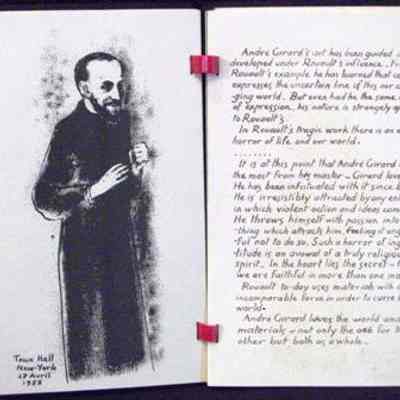 Town Hall
New-York
27 Avril
1952
André Girard's art has been guided
developed under Rouault's influence.
Rouault's example he has learned that
expresses the uncertain line of this our
ging world. But even had he the same
of expression, his nature is strangely
to Rouault's
In Rouault's tragic work there is an
horror of life and our world.
........
It is at this point that André Girard
the most from his master - Girard
He has been infatuated with it since
He is irresistibly attracted by any
in which violent action and ideas
He throws himself with passion into
thing which attracts him, feeling it
ful not to do so. Such a horror of
titude is an avowal of a truly
spirit. In the heart lies the secret -
we are faithful in more than one
Rouault to-day uses materials with
incomparable force in order to curse
world -
André Girard loves the world and
materials - not only the one for the
other but both as a whole.